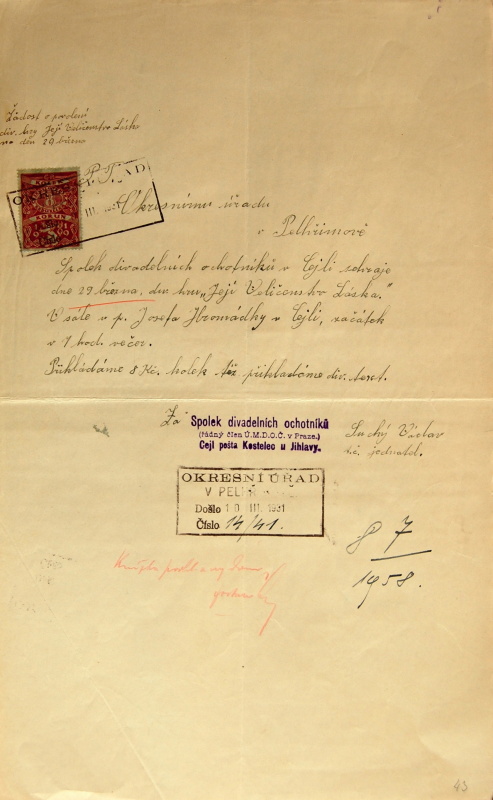 Žádost o povolení
div. hry Její Veličenstvo Láska
na den 29. března
P.T.
OKRESNÍ ÚŘAD
III. 1931
Okresnímu úřadu
v Pelhřimově
Spolek divadelních ochotníků v Cejli sehraje
dne 29. března, div. hru "Její Veličenstvo Láska."
V sále u p. Josefa Hromádky v Cejli, začátek
v 7 hod. večer.
Přikládáme 8 Kč. kolek též přikládáme div. text.
Za
Spolek divadelních ochotníků
(řádný člen Ú.M.D.O.Č. v Praze.)
Cejl pošta Kostelec u Jihlavy.
Suchý Václav
t.č. jednatel.
OKRESNÍ ÚŘAD
V PELHŘIMOVĚ
Došlo 10 III. 1931
Číslo 14/41.
8 7
1958.
43